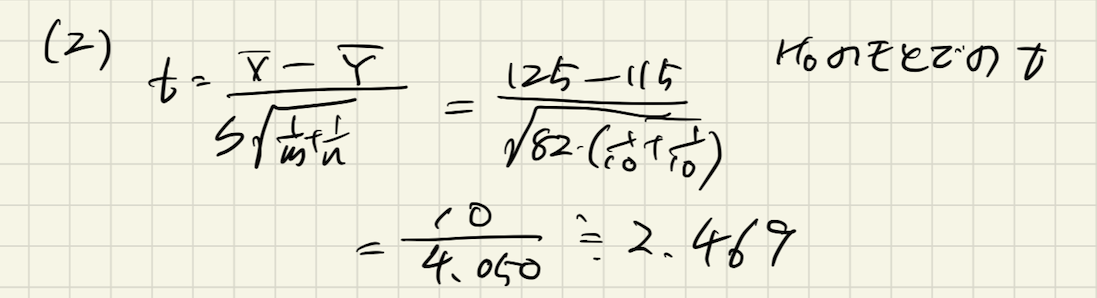 (2) t = (X̄ − Ȳ) / (S√(1/m + 1/n)) = (125 − 115) / √(82·(1/10 + 1/10)) H₀のもとでの t
= 10 / 4.050 ≒ 2.469